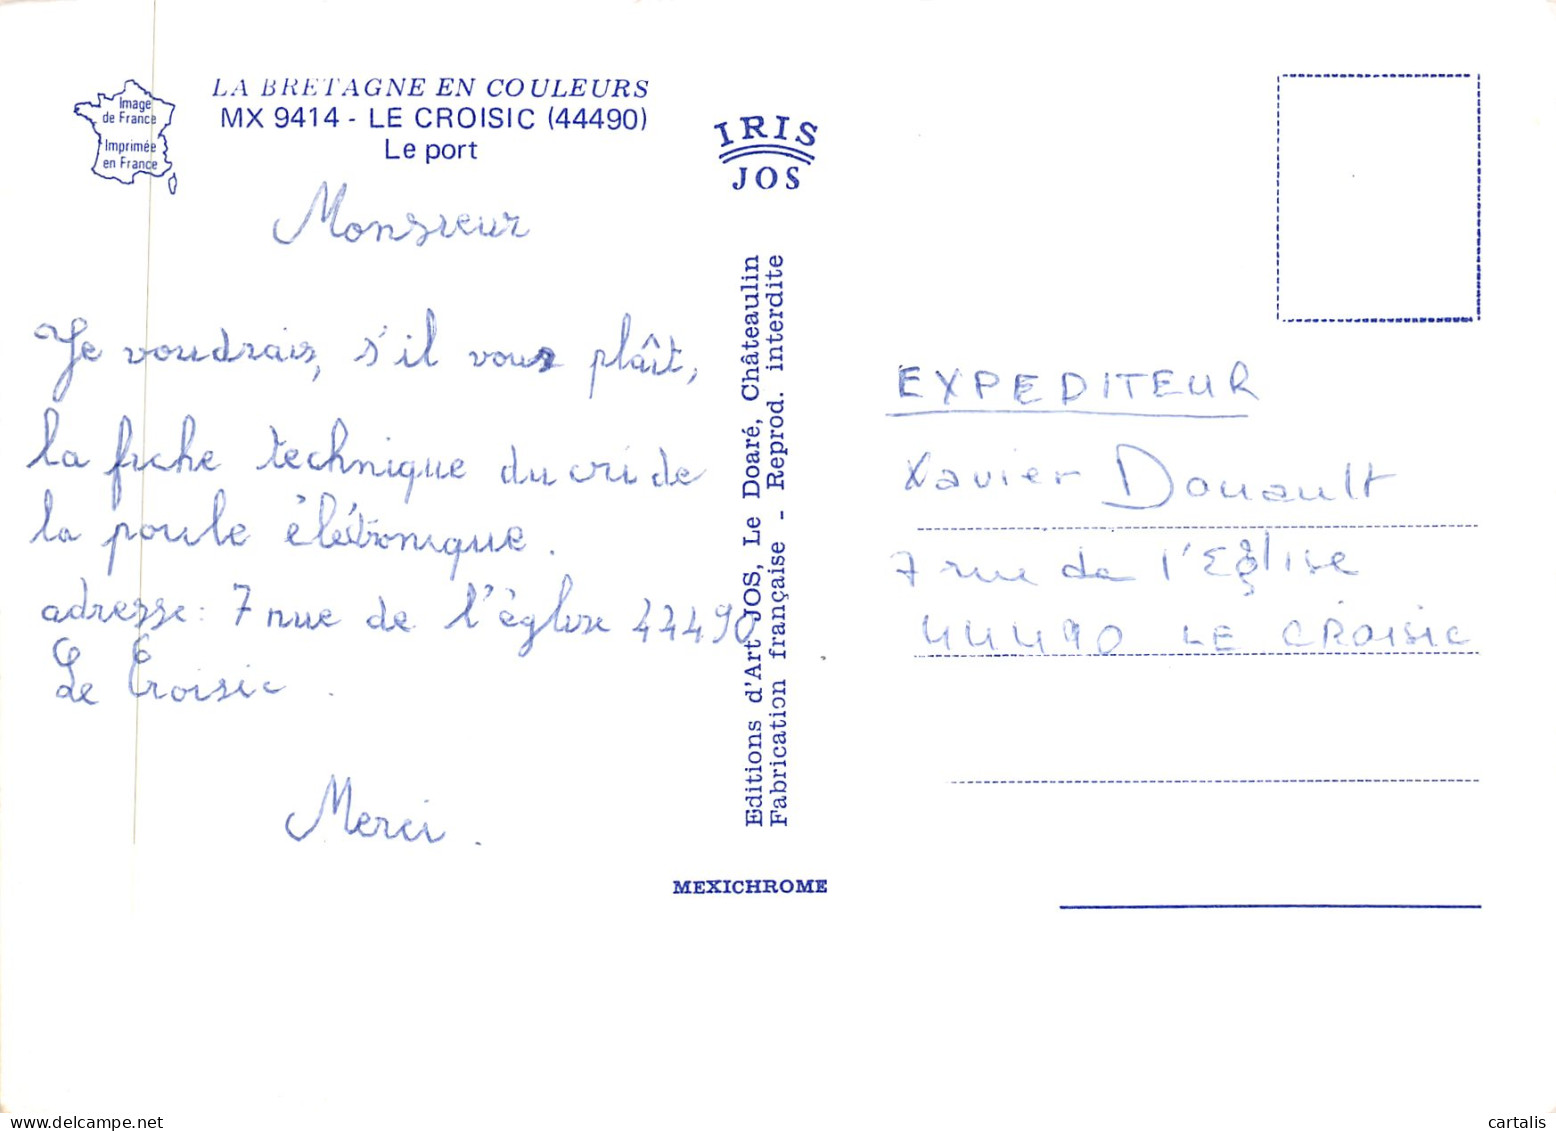 LA BRETAGNE EN COULEURS
MX 9414 - LE CROISIC (44490)
Le port
Image
de France
Imprimée
en France
IRIS
JOS
Monsieur
Je voudrais, s'il vous plaît,
la fiche technique du cri de
la poule électronique.
adresse : 7 rue de l'église 44490
Le Croisic.
Merci.
Editions d'Art JOS, Le Doaré, Châteaulin
Fabrication française - Reprod. interdite
MEXICHROME
EXPEDITEUR
Xavier Douault
7 rue de l'Eglise
44490 LE CROISIC
cartalis